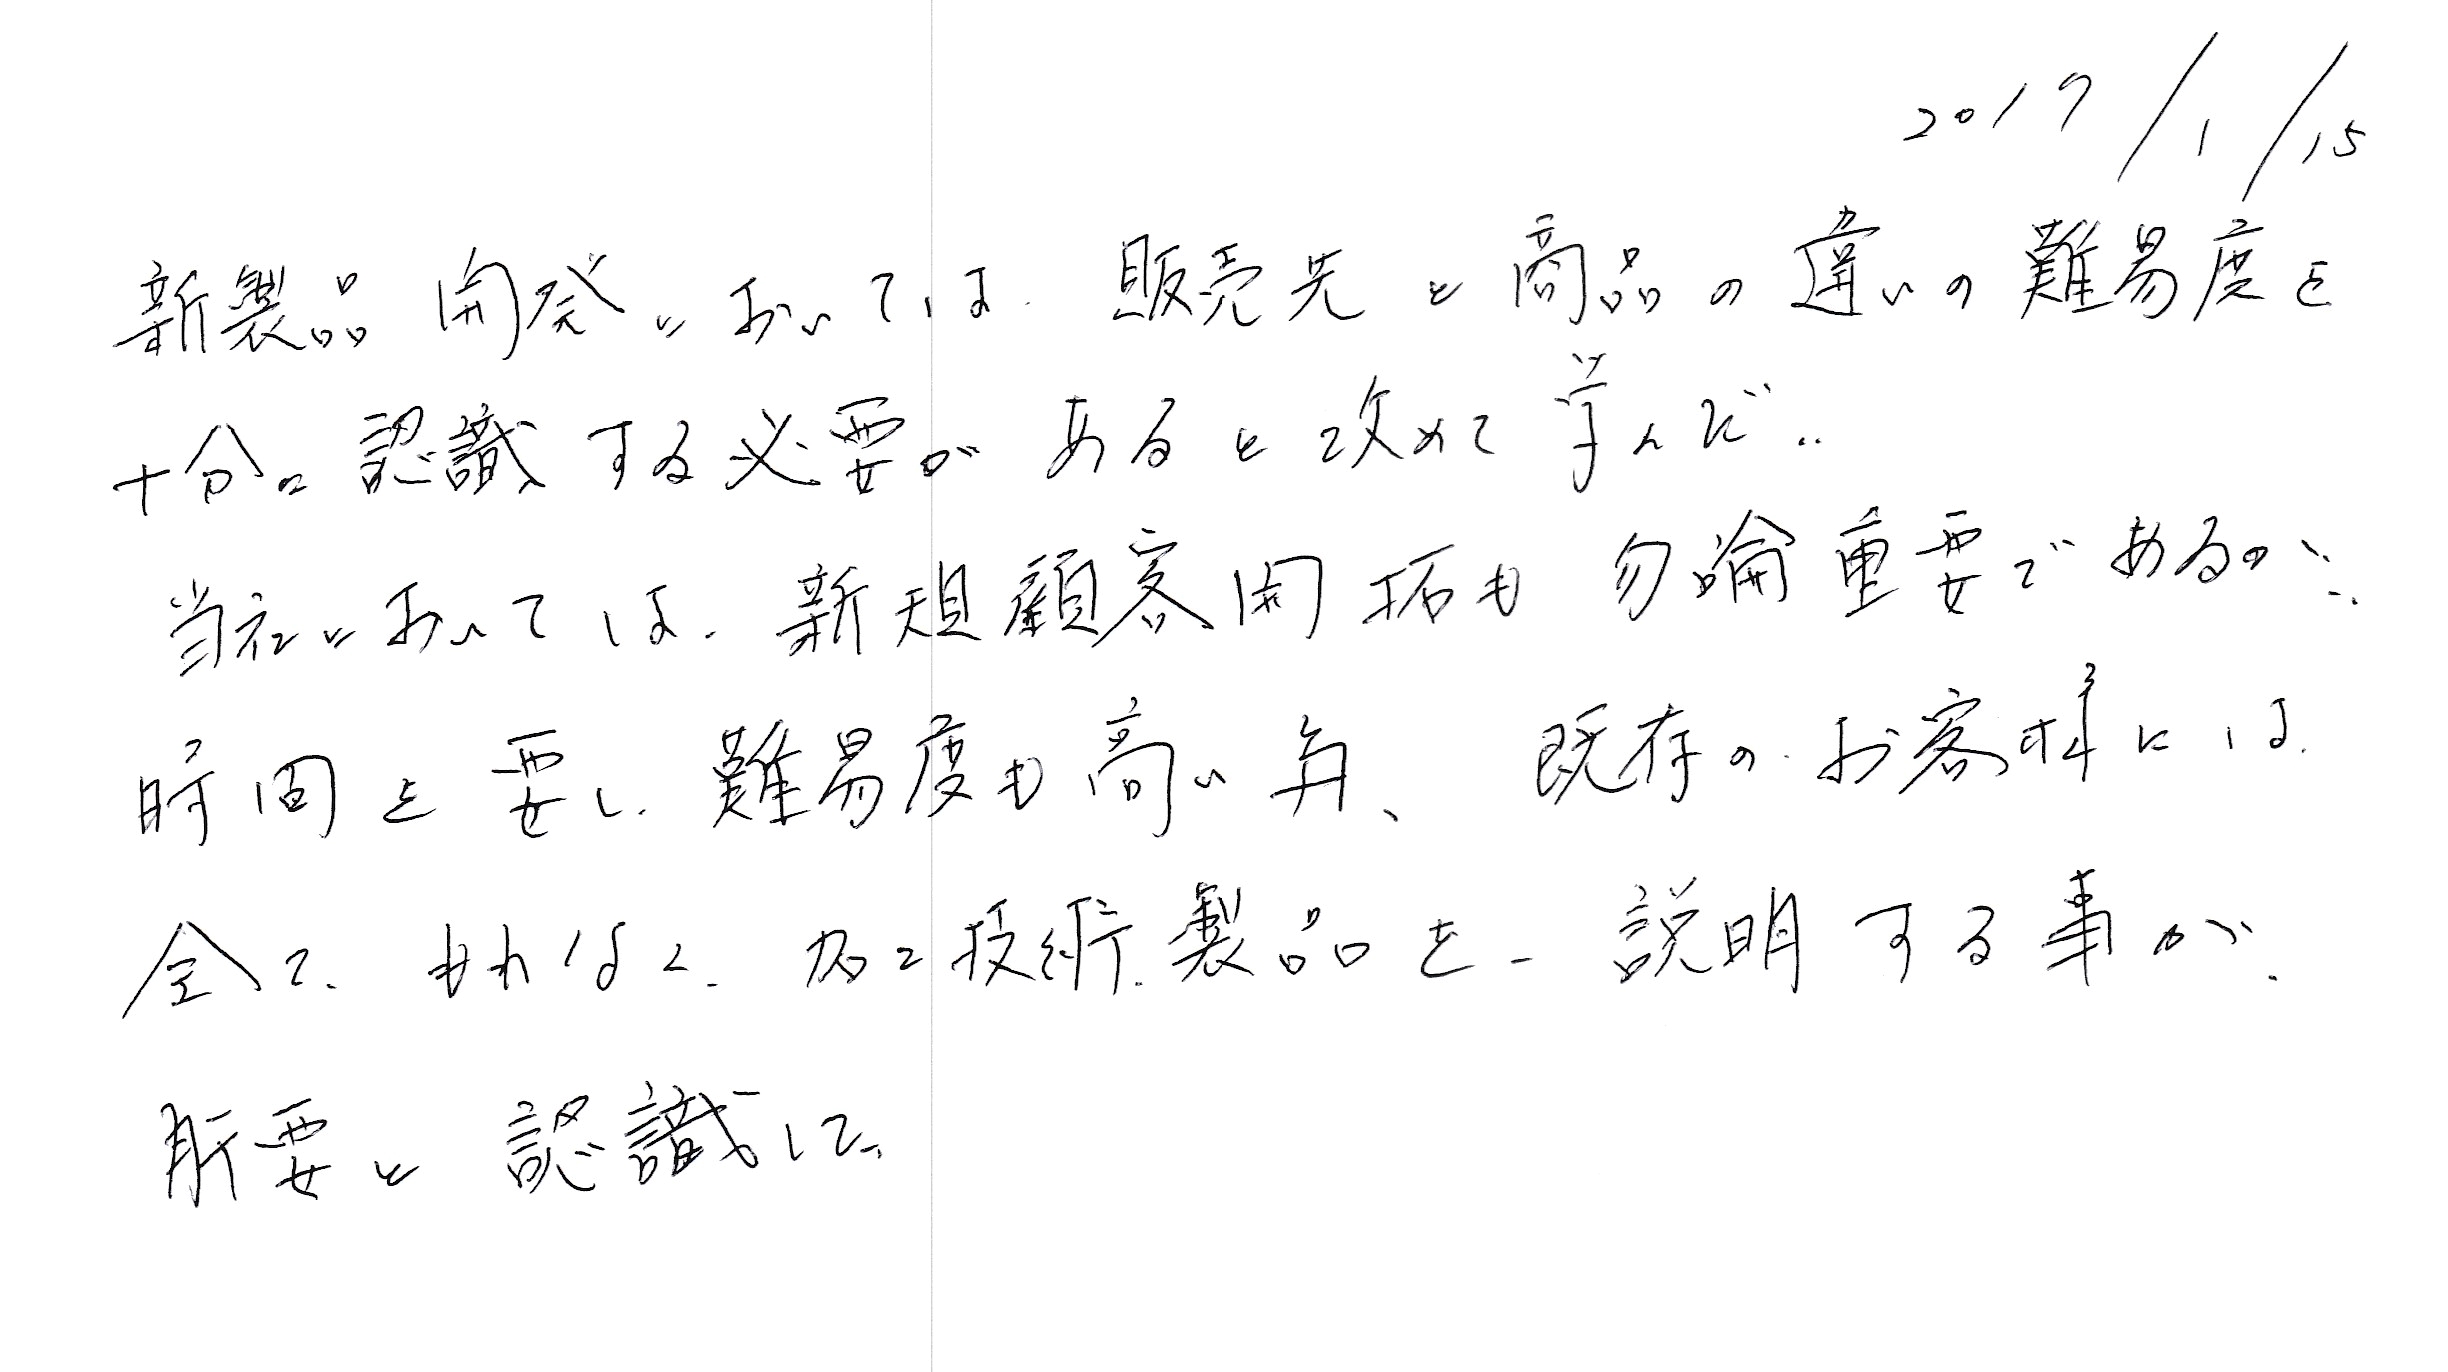 2017/1/15
新製品開発においては、販売先と商品の違いの難易度を
十分に認識する必要があると改めて学んだ。
当社においては、新規顧客開拓も勿論重要であるが、
時間を要し、難易度も高い為、既存のお客様には、
全て、もれなく、加工技術、製品を、説明する事が、
肝要と認識した。